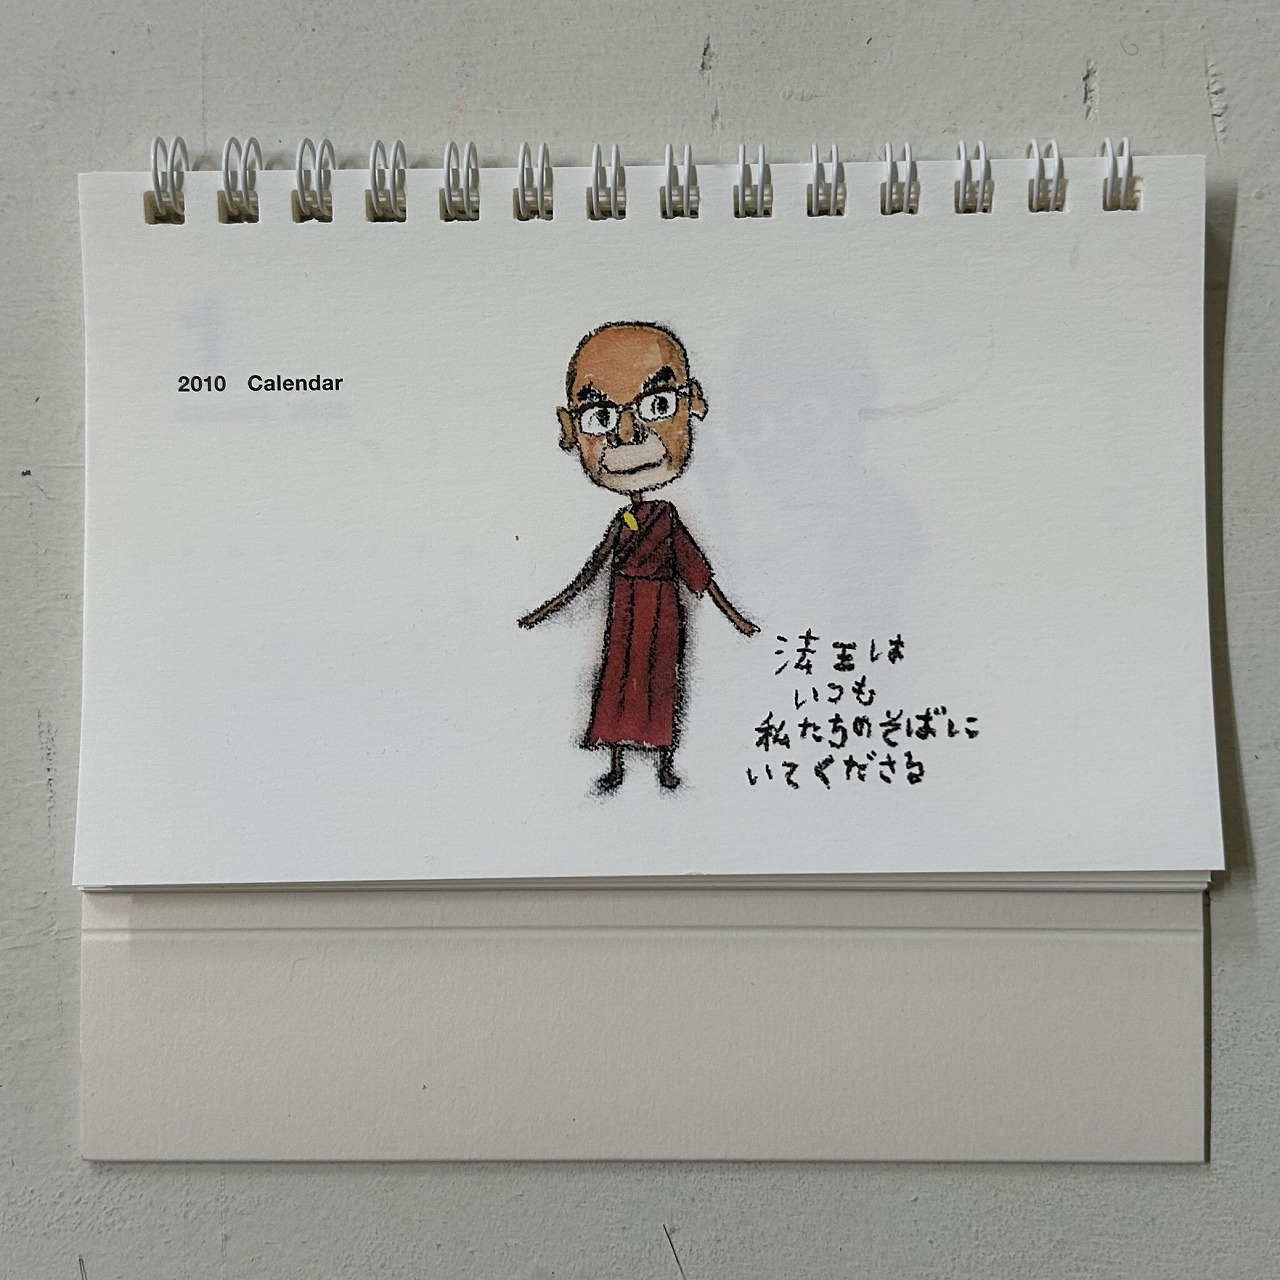 2010 Calendar
法王は
いつも
私たちのそばに
いてくださる